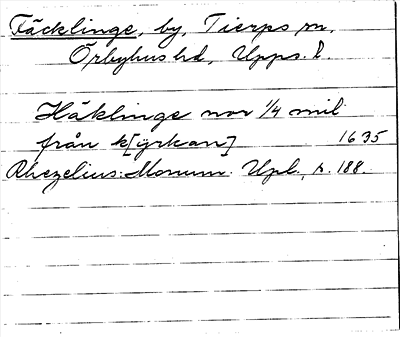 Fäcklinge, by, Tierps sn,
Örbyhus hd, Upps. l.
Häklinge nor 1/4 mil
från k[yrkan] 1635
Rhezelius: Monum. Upl., s. 188.